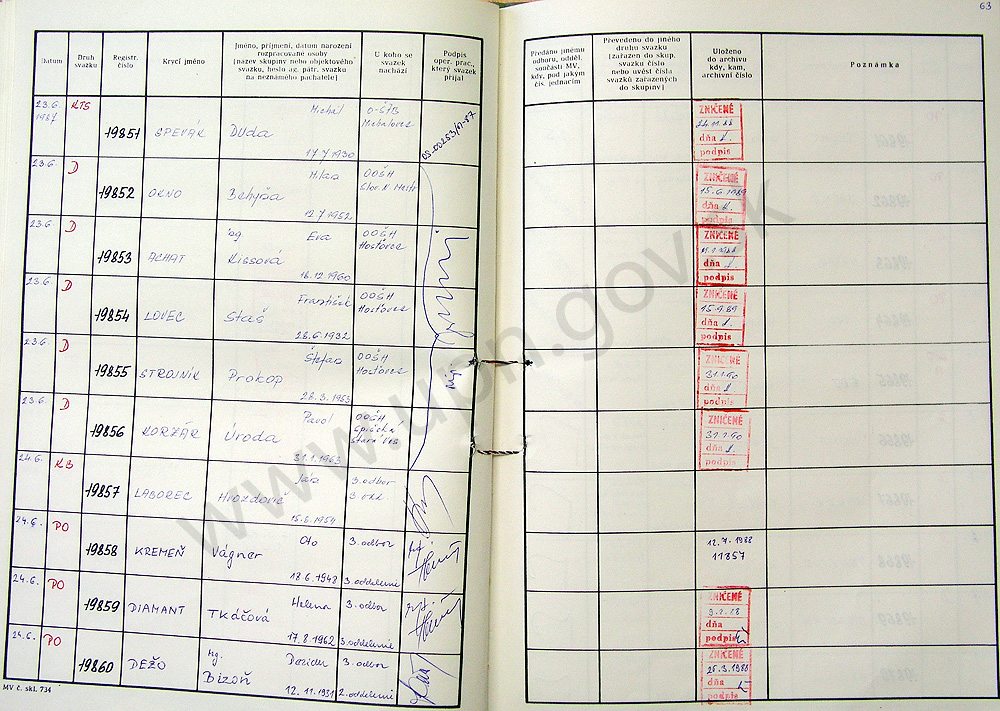 63
Datum
Druh svazku
Registr. číslo
Krycí jméno
Jméno, příjmení, datum narození
rozpracované osoby
[název skupiny nebo objektového
svazku, heslo ag. pátr. svazku
na neznámého pachatele]
U koho se
svazek
nachází
Podpis
oper. prac.,
který svazek
přijal
Předáno jinému
odboru, odděl.
součásti MV,
kdy, pod jakým
čís. jednacím
Převedeno do jiného
druhu svazku
[zařazen do skup.
svazku číslo
nebo uvést čísla
svazků zařazených
do skupiny]
Uloženo
do archivu
kdy, kam,
archivní číslo
Poznámka
23.6. 1987 KTS 19851 SPEVÁK Duda Michal 17.7.1930 O-ŠTB Michalovce
ZNIČENÉ
dňa
podpis
23.6. D 19852 OKNO 12.7.1952 OOŠH
ZNIČENÉ
15.6.1989
dňa
podpis
23.6. D 19853 ACHAT Ing. Eva Kissova 16.12.1960 OOŠH Hosťovce
ZNIČENÉ
dňa
podpis
23.6. D 19854 LOVEC František Staš 28.6.1932 OOŠH Hosťovce
ZNIČENÉ
15.9.89
dňa
podpis
23.6. D 19855 STROJNÍK Štefan Prokop 26.3.1953 OOŠH Hosťovce
ZNIČENÉ
31.1.90
dňa
podpis
23.6. D 19856 KORZÁR Pavol Úroda 31.1.1963 OOŠH
ZNIČENÉ
31.1.90
dňa
podpis
24.6. KB 19857 LABOREC Hvozdovič 15.6.1954 3.odbor
24.6. PO 19858 KREMEŇ Oto Vágner 18.6.1948 3.odbor 3.oddelenie
12.7.1988
11857
24.6. PO 19859 DIAMANT Helena Tkáčová 17.8.1962 3.odbor 3.oddelenie
ZNIČENÉ
dňa
podpis
24.6. PO 19860 DEŽO Ing. Dezider Bizoň 12.11.1931 3.odbor 2.oddelenie
ZNIČENÉ
25.3.1988
dňa
podpis
MV č. skl. 734
www.upn.gov.sk